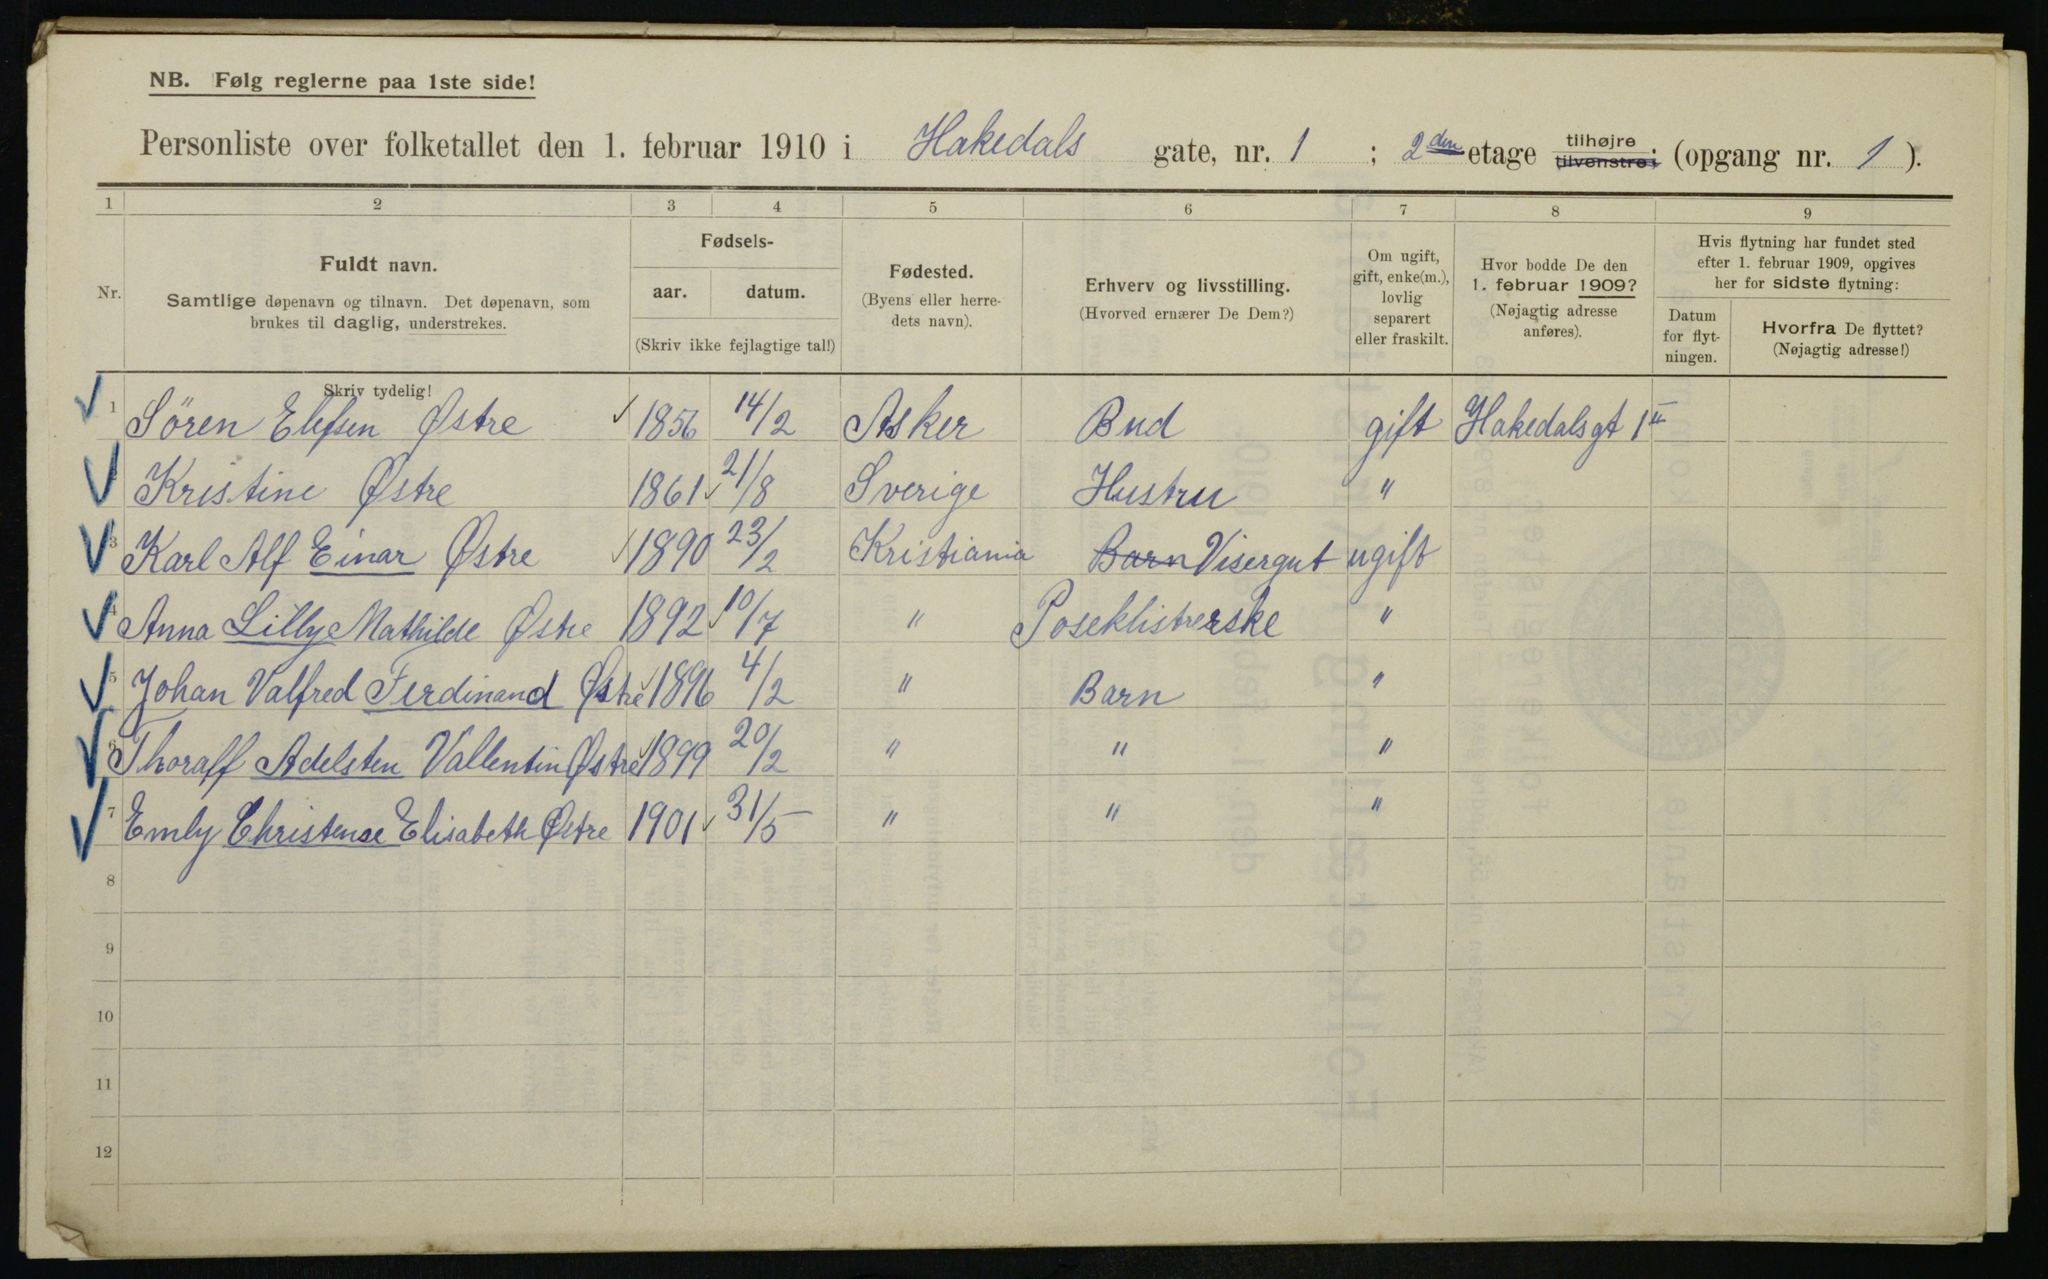 NB. Følg reglerne paa 1ste side!
Personliste over folketallet den 1. februar 1910 i Hakedals gate, nr. 1 ; 2den etage tilhøjre tilvenstre; (opgang nr. 1 ).
1 2 3 4 5 6 7 8 9
Nr.
Fuldt navn.
Samtlige døpenavn og tilnavn. Det døpenavn, som
brukes til daglig, understrekes.
Skriv tydelig!
Fødsels-
aar. datum.
(Skriv ikke fejlagtige tal!)
Fødested.
(Byens eller herre-
dets navn).
Erhverv og livsstilling.
(Hvorved ernærer De Dem?)
Om ugift,
gift, enke(m.),
lovlig
separert
eller fraskilt.
Hvor bodde De den
1. februar 1909?
(Nøjagtig adresse
anføres).
Hvis flytning har fundet sted
efter 1. februar 1909, opgives
her for sidste flytning:
Datum
for flyt-
ningen.
Hvorfra De flyttet?
(Nøjagtig adresse!)
1 Søren Elefsen Østre 1856 14/2 Asker Bud gift Hakedalsgt 1 II
Kristine Østre 1861 21/8 Sverige Hustru "
3 Karl Alf Einar Østre 1890 23/2 Kristiania Barn Visergut ugift
4 Anna Lilly Mathilde Østre 1892 10/7 " Poseklistrerske "
5 Johan Valfred Ferdinand Østre 1896 4/2 " Barn "
6 Thoralf Adelsten Vallentin Østre 1899 20/2 " " "
7 Emly Christense Elisabeth Østre 1901 31/5 " " "
8
9
10
11
12